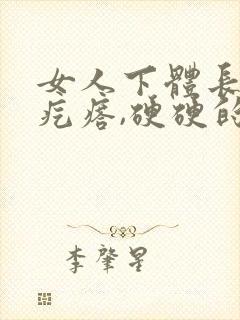 女人下體長
疙瘩,硬硬的
李肇星